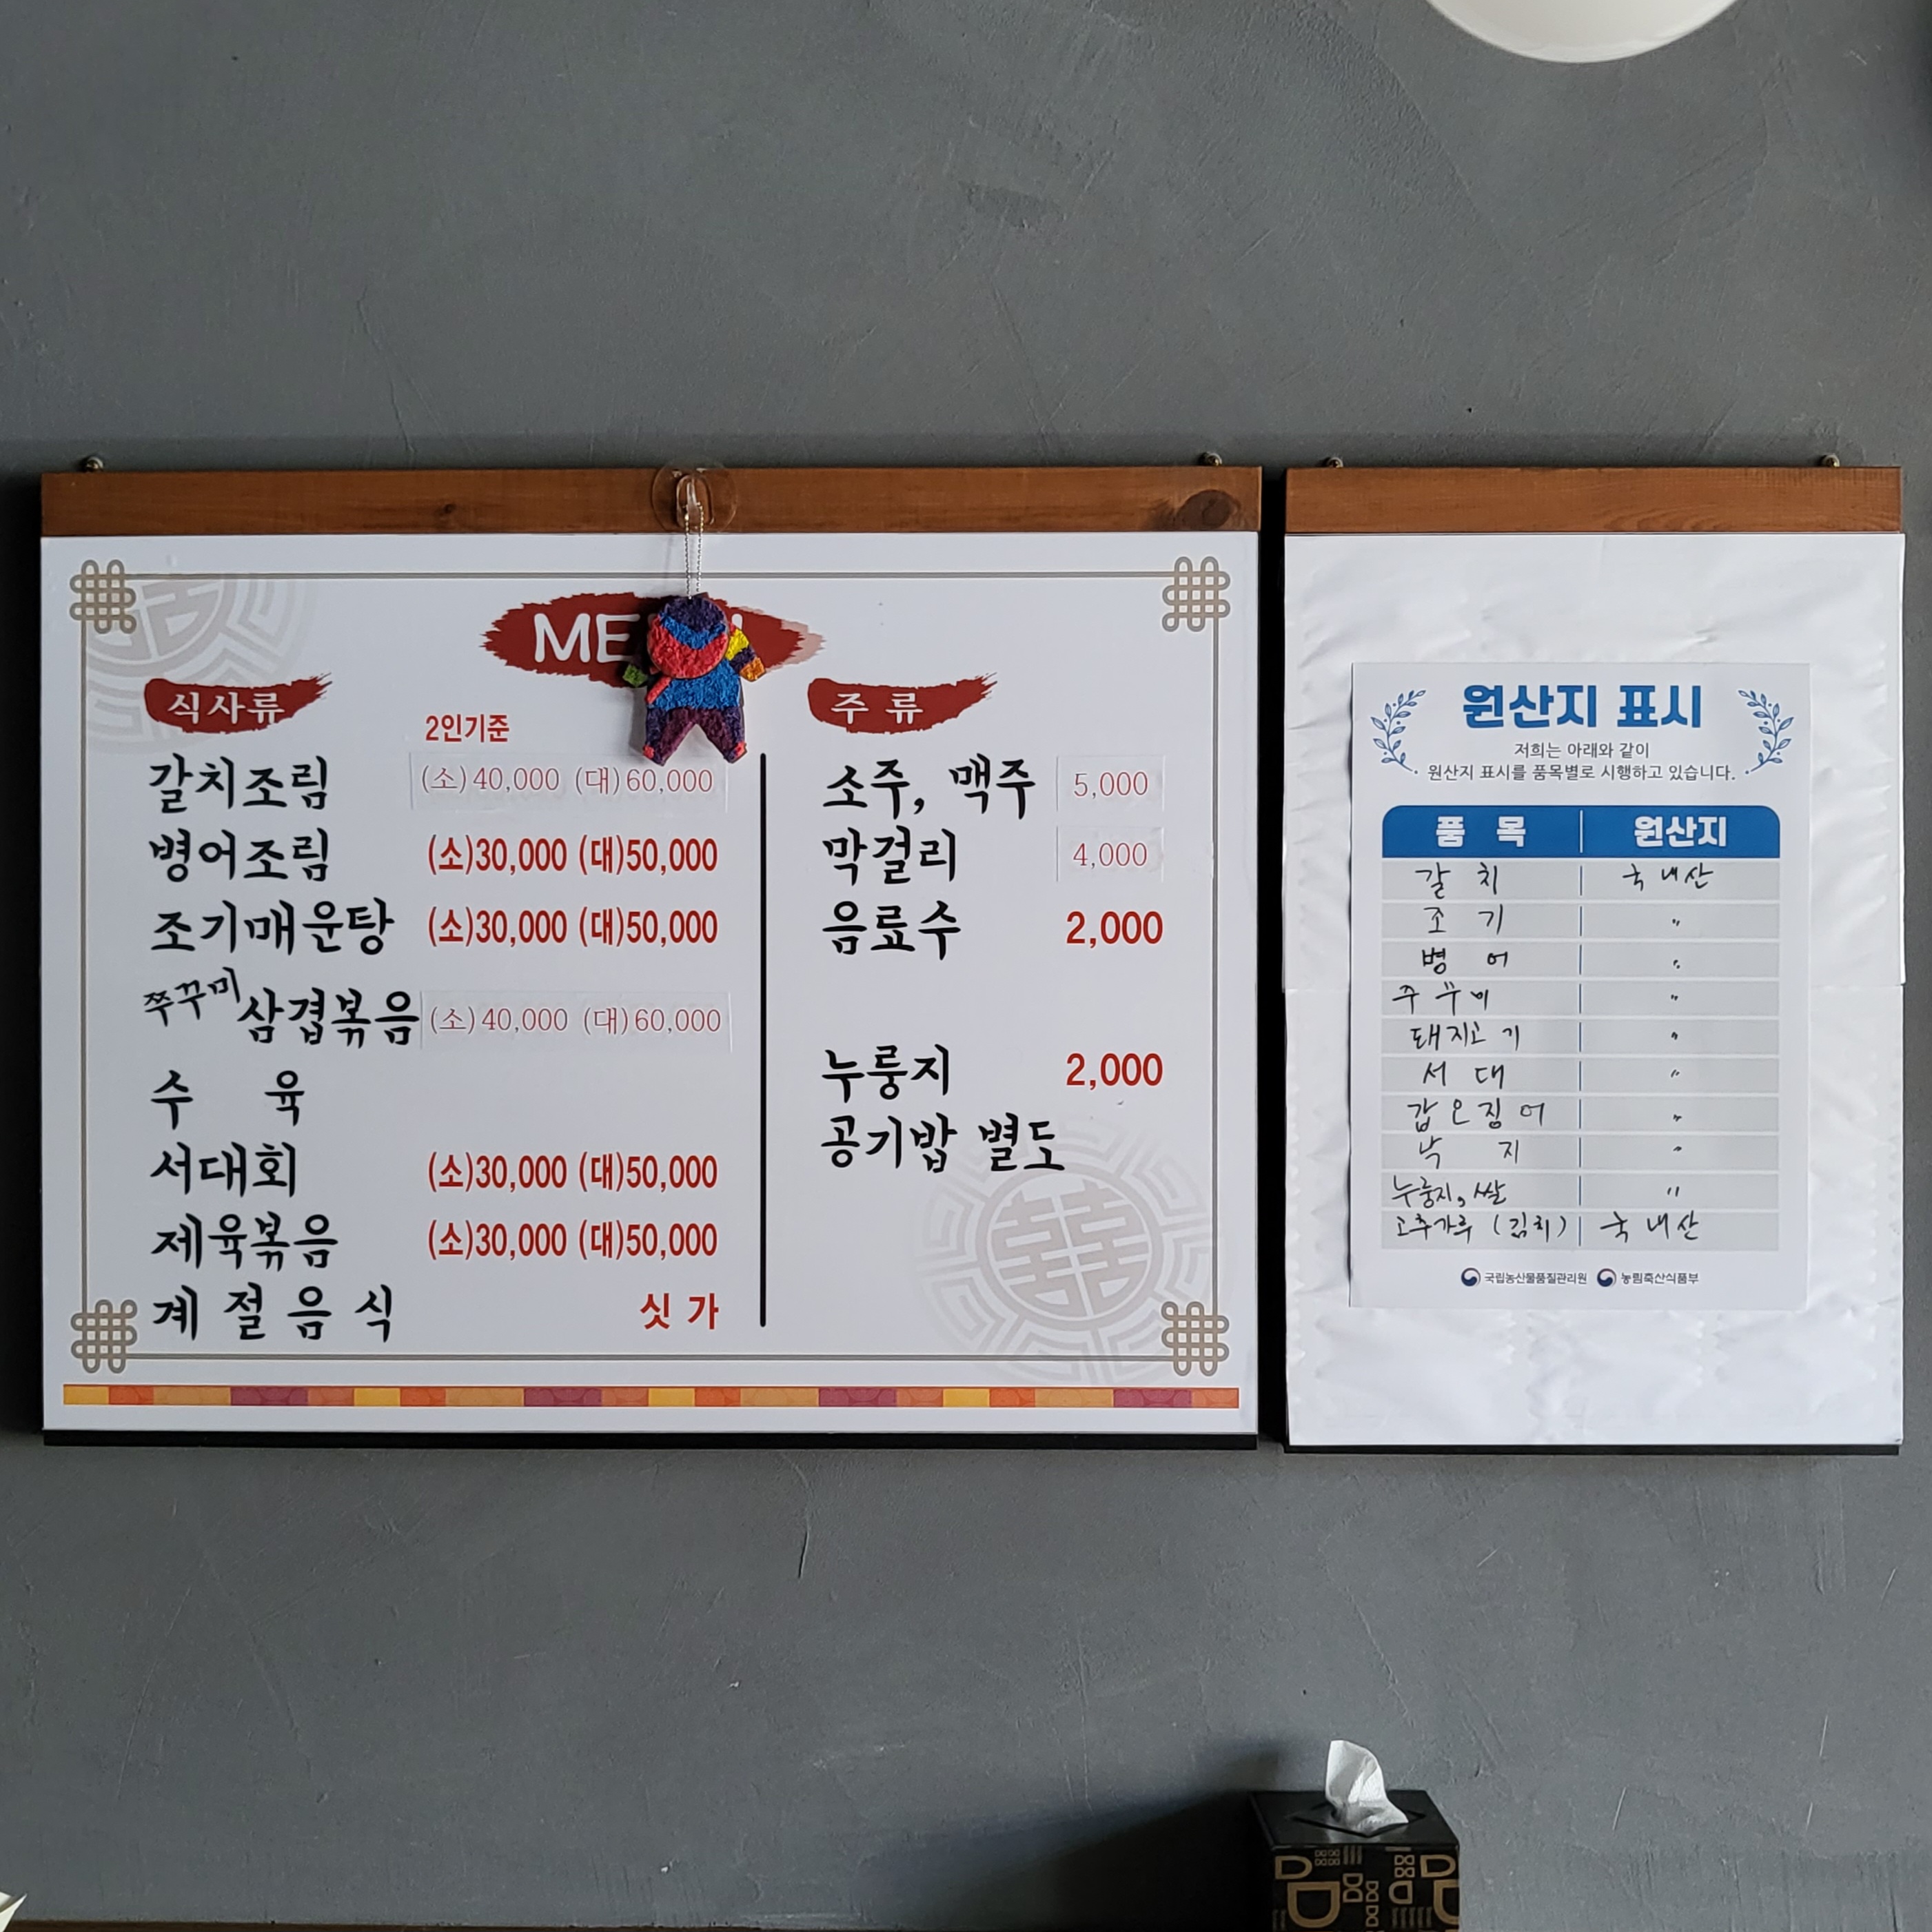 ME
식사류
2인기준
갈치조림 (소)40,000 (대)60,000
병어조림 (소)30,000 (대)50,000
조기매운탕 (소)30,000 (대)50,000
쭈꾸미 삼겹볶음 (소)40,000 (대)60,000
수 육
서대회 (소)30,000 (대)50,000
제육볶음 (소)30,000 (대)50,000
계 절 음 식 싯 가
주 류
소주, 맥주 5,000
막걸리 4,000
음료수 2,000
누룽지 2,000
공기밥 별도
원산지 표시
저희는 아래와 같이
원산지 표시를 품목별로 시행하고 있습니다.
품 목 원산지
갈 치 국내산
조 기 〃
병 어 〃
주꾸미 〃
돼지고기 〃
서 대 〃
갑오징어 〃
낙 지 〃
누룽지, 쌀 〃
고추가루 (김치) 국내산
국립농산물품질관리원 농림축산식품부